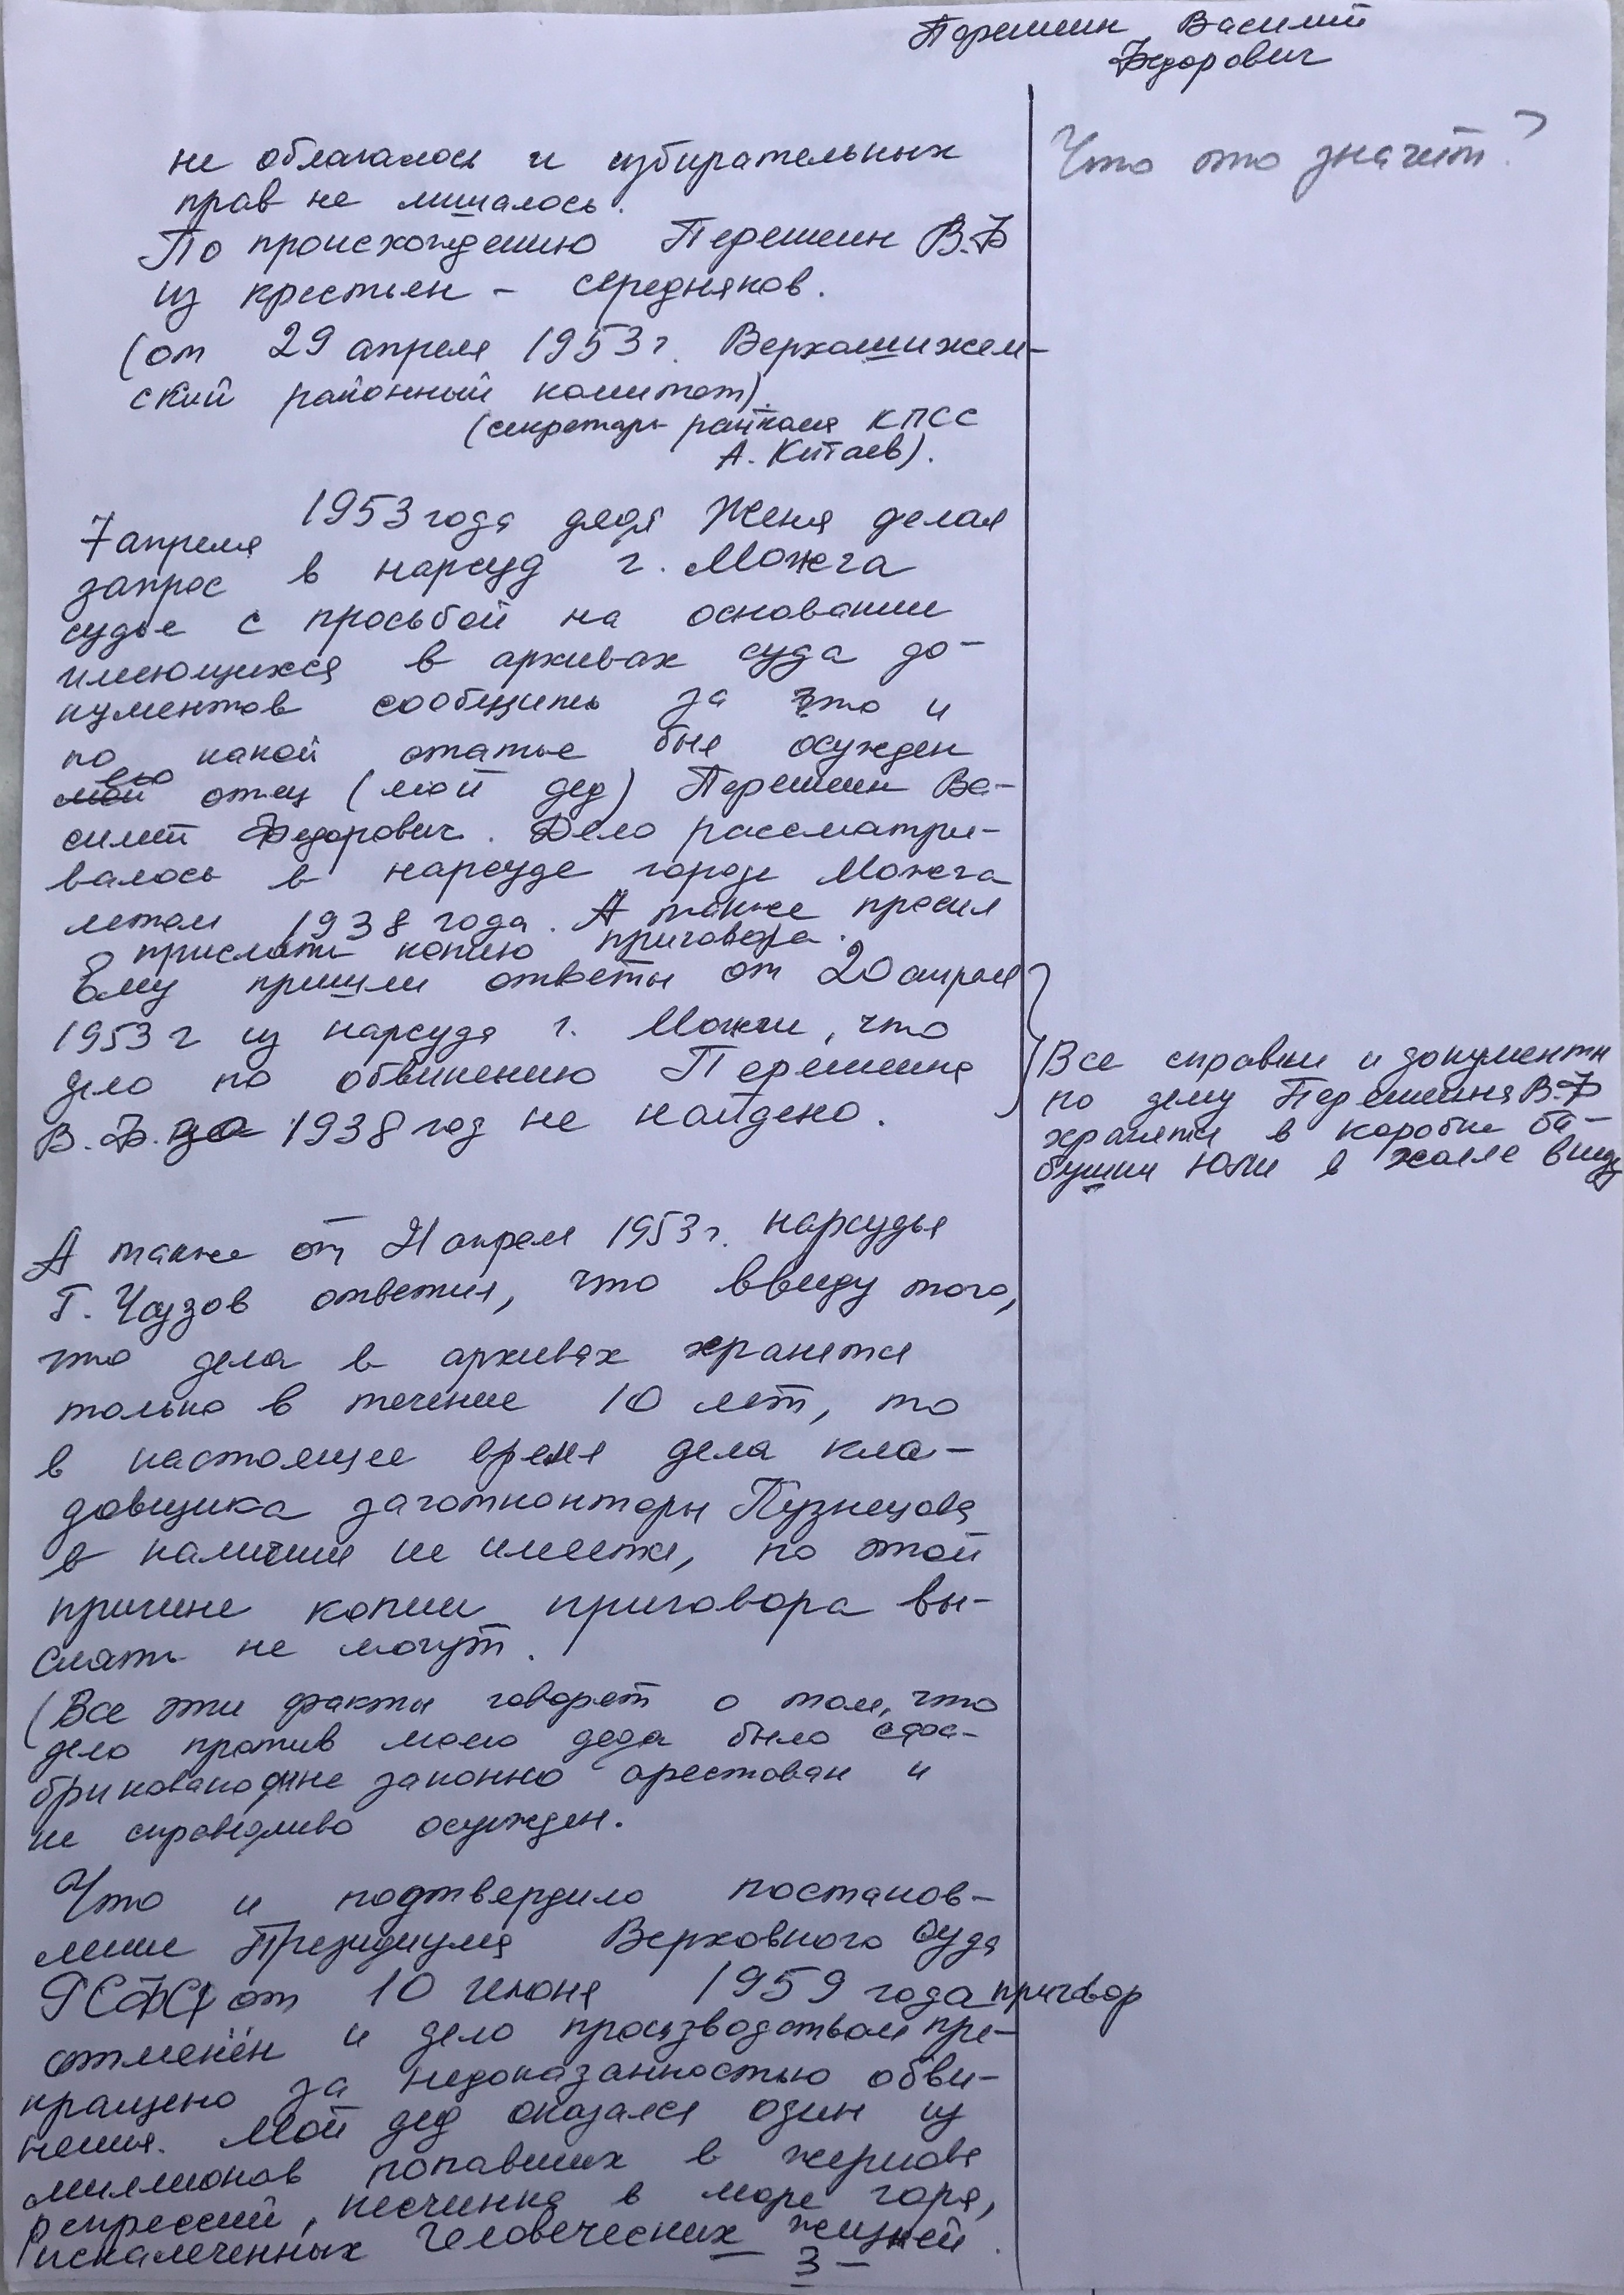 Перешеин Василий
Федорович
Что это значит?
не облагалось и избирательных
прав не лишалось.
По происхождению Перешеин В.Ф
из крестьян - середняков.
(от 29 апреля 1953 г. Верхошижем-
ский районный комитет)
(секретарь райкома КПСС
А. Китаев).
7 апреля 1953 года дядя Женя делал
запрос в нарсуд г. Можга
судье с просьбой на основании
имеющихся в архивах суда до-
кументов сообщить за что и
по какой статье был осужден
его
мой отец (мой дед) Перешеин Ва-
силий Федорович. Дело рассматри-
валось в нарсуде города Можга
летом 1938 года. А также просил
прислать копию приговора.
Ему пришли ответы от 20 апреля
1953 г из нарсуда г. Можги, что
дело по обвинению Перешеина
В.Ф. за 1938 год не найдено.
Все справки и документы
по делу Перешеина В.Ф
хранятся в коробке ба-
бушки Юли в
А также от 21 апреля 1953 г. нарсудья
Г. Чузов ответил, что ввиду того,
что дела в архивах хранятся
только в течение 10 лет, то
в настоящее время дела кла-
довщика заготконторы Пузнецова
в наличии не имеется, по этой
причине копии приговора вы-
слать не могут.
(Все эти факты говорят о том, что
дело против моего деда было сфа-
бриковано, он не законно арестован и
не справедливо осужден.
Что и подтвердило постанов-
ление Президиума Верховного Суда
РСФСР от 10 июня 1959 года приговор
отменён и дело производством пре-
кращено за недоказанностью обви-
нения. Мой дед оказался один из
миллионов попавших в жернова
репрессий, песчинка в море горя,
искалеченных человеческих жизней.
- 3 -